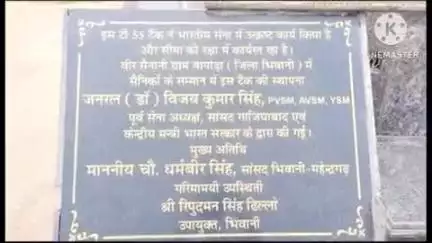 इस टी 55 टैंक ने भारतीय सेना में उत्कृष्ट कार्य किया है
और सीमा की रक्षा में कार्यरत रहा है।
वीर सैनानी ग्राम बापोड़ा ( जिला भिवानी ) में
सैनिकों के सम्मान में इस टैंक की स्थापना
जनरल ( डॉ ) विजय कुमार सिंह, PVSM, AVSM, YSM
पूर्व सेना अध्यक्ष, सांसद गाजियाबाद एवं
केन्द्रीय मन्त्री भारत सरकार के द्वारा की गई।
मुख्य अतिथि
माननीय चौ. धर्मबीर सिंह, सांसद भिवानी-महेन्द्रगढ़
गरिमामयी उपस्थिती
श्री रिपुदमन सिंह ढिल्लो
उपायुक्त, भिवानी
K
NEMASTER